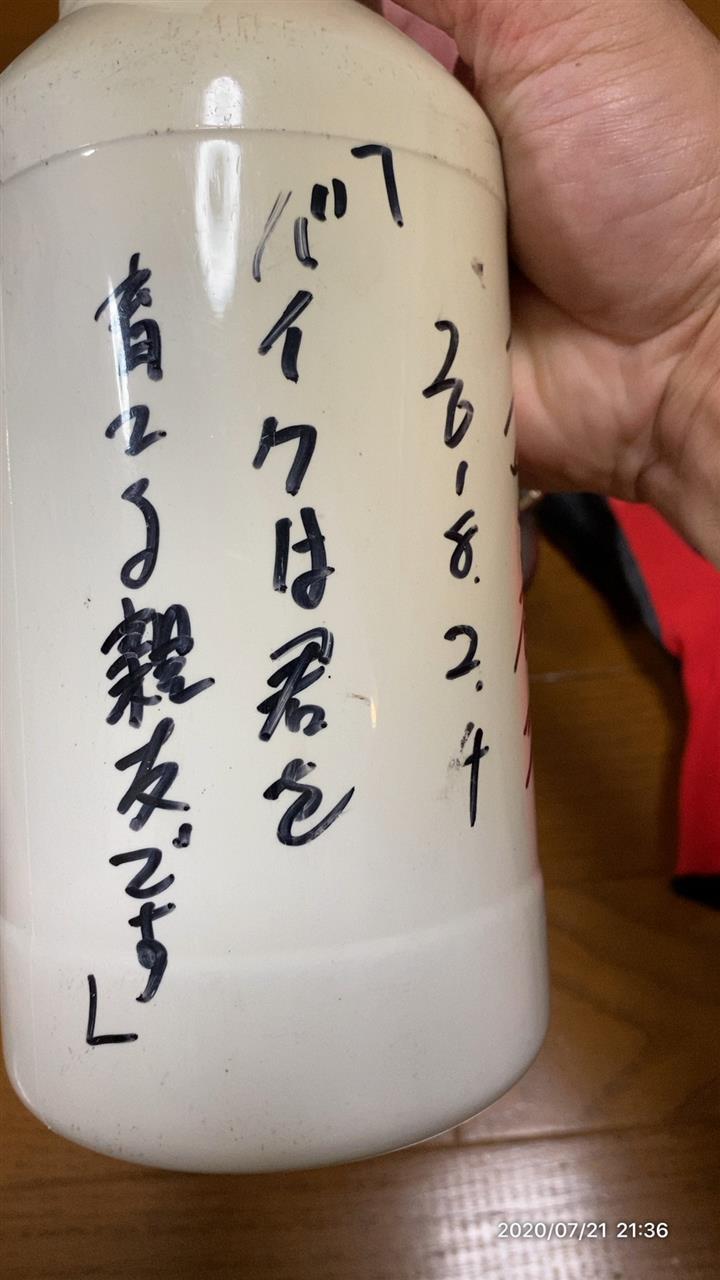 26.8.2.4
「バイクは君を
育てる親友です」
2020/07/21 21:36